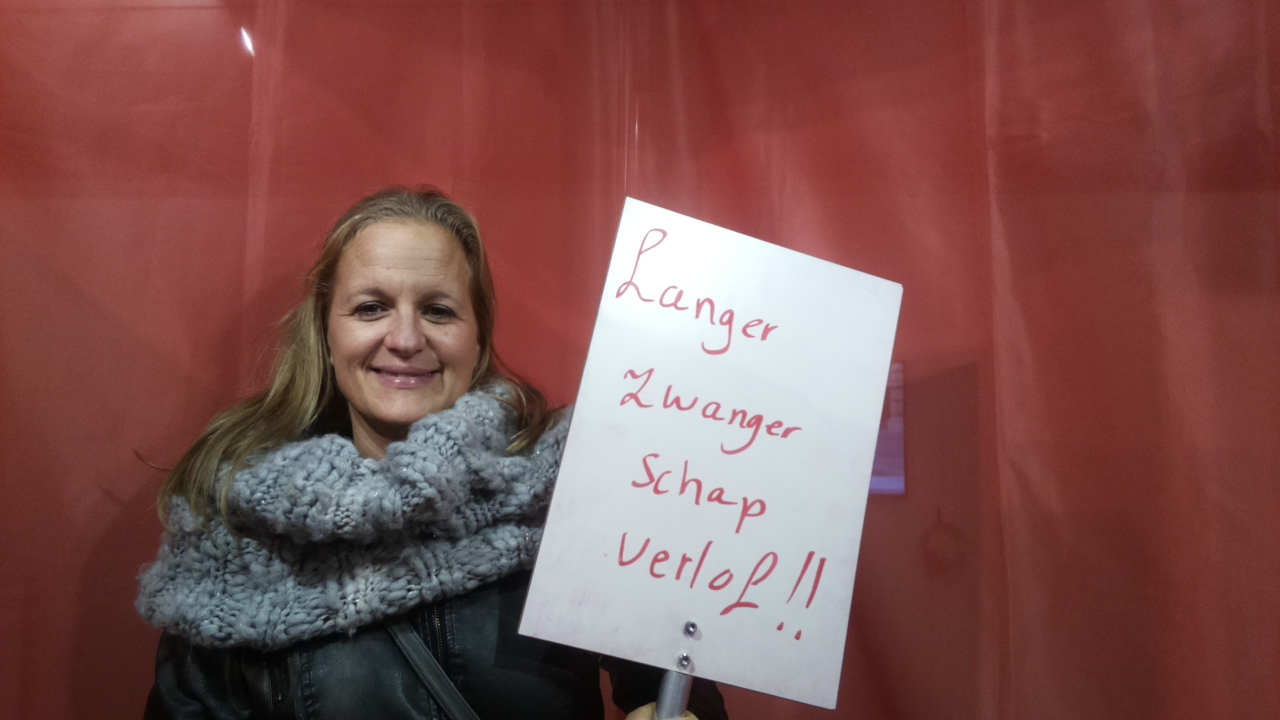 Langer
Zwanger
Schap
verlof!!